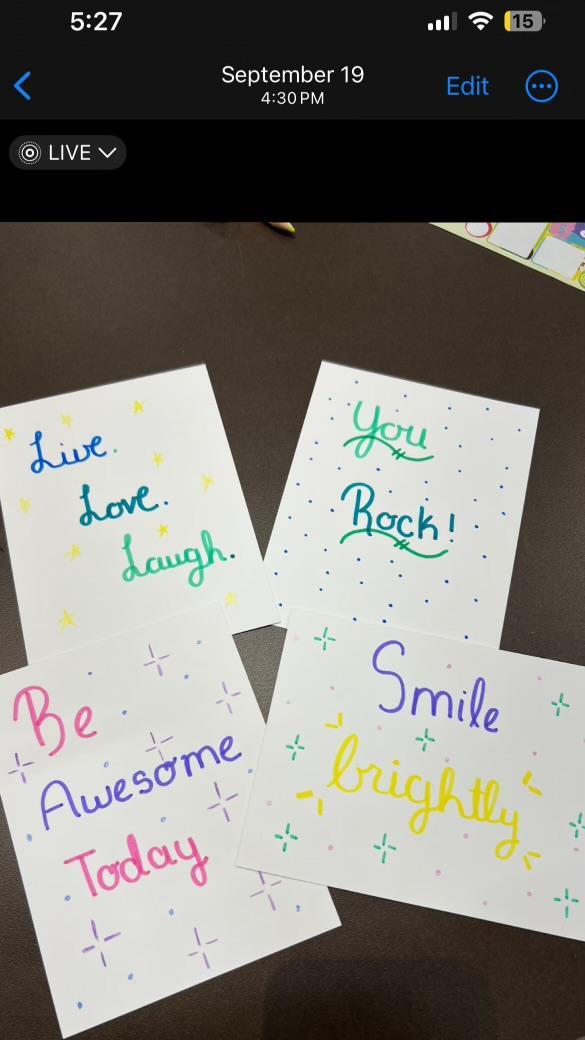 5:27
15
September 19
4:30 PM
Edit
LIVE
Live.
Love.
Laugh.
You
Rock!
Be
Awesome
Today
Smile
brightly